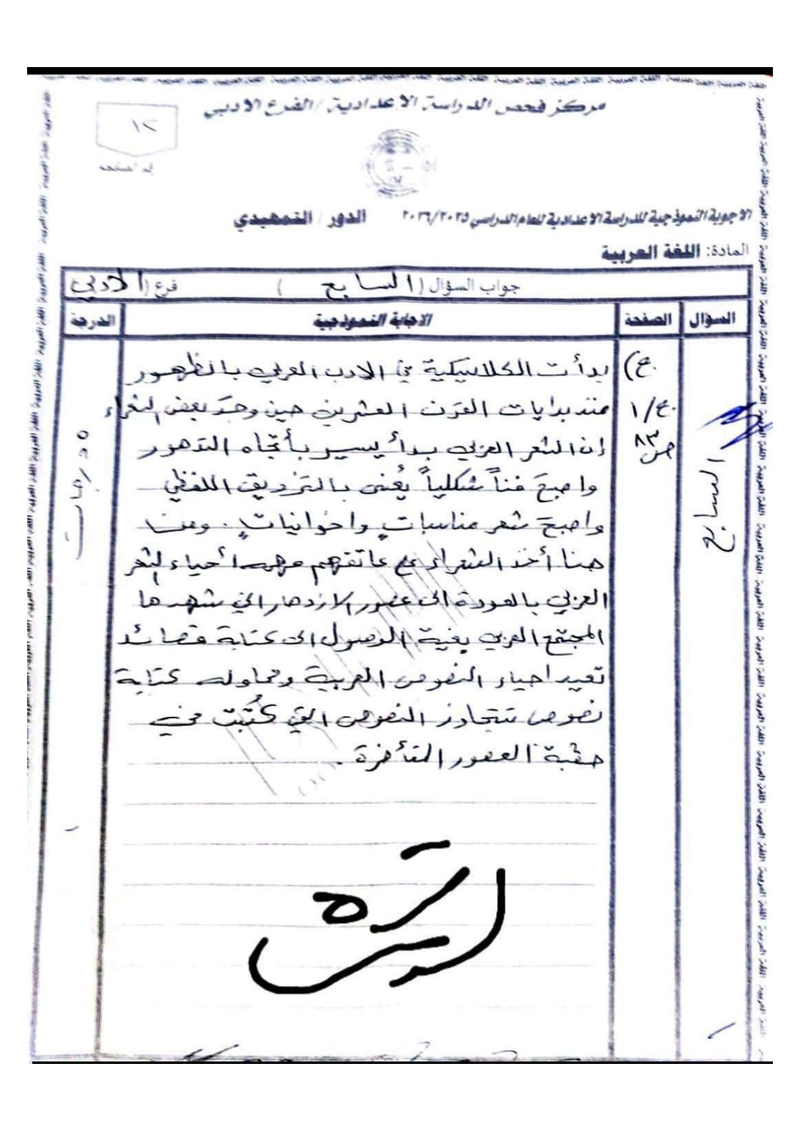 مركز فحص الدراسة الاعدادية / الفرع الادبي
١٢
رقم الصفحة
الاجوبة النموذجية للدراسة الاعدادية للعام الدراسي ٢٠٢٥/٢٠٢٦ الدور / التمهيدي
المادة: اللغة العربية
جواب السؤال ( السابع ) فرع ( الادبي )
السؤال الصفحة الاجابة النموذجية الدرجة
السابع
ج/١
ص ٨٣
٥ درجات
ج) بدأت الكلاسيكية في الادب العربي بالظهور
منذ بدايات القرن العشرين حين وجدَ بعض الشعراء
إن الشعر العربي بدأ يسير بأتجاه التدهور
واصبحَ فناً شكلياً يُعنى بالتزويق اللفظي
واصبحَ شعر مناسباتٍ واخوانياتٍ. ومن
هنا أخذ الشعراء على عاتقهم مهمة أحياء الشعر
العربي بالعودة الى عصور الازدهار التي شهدها
المجتمع العربي بغية الوصول الى كتابة قصائد
تعيد احياء النصوص العربية ومحاولة كتابة
نصوص تتجاوز النصوص التي كُتبت في
حقبة العصور المتأخرة.